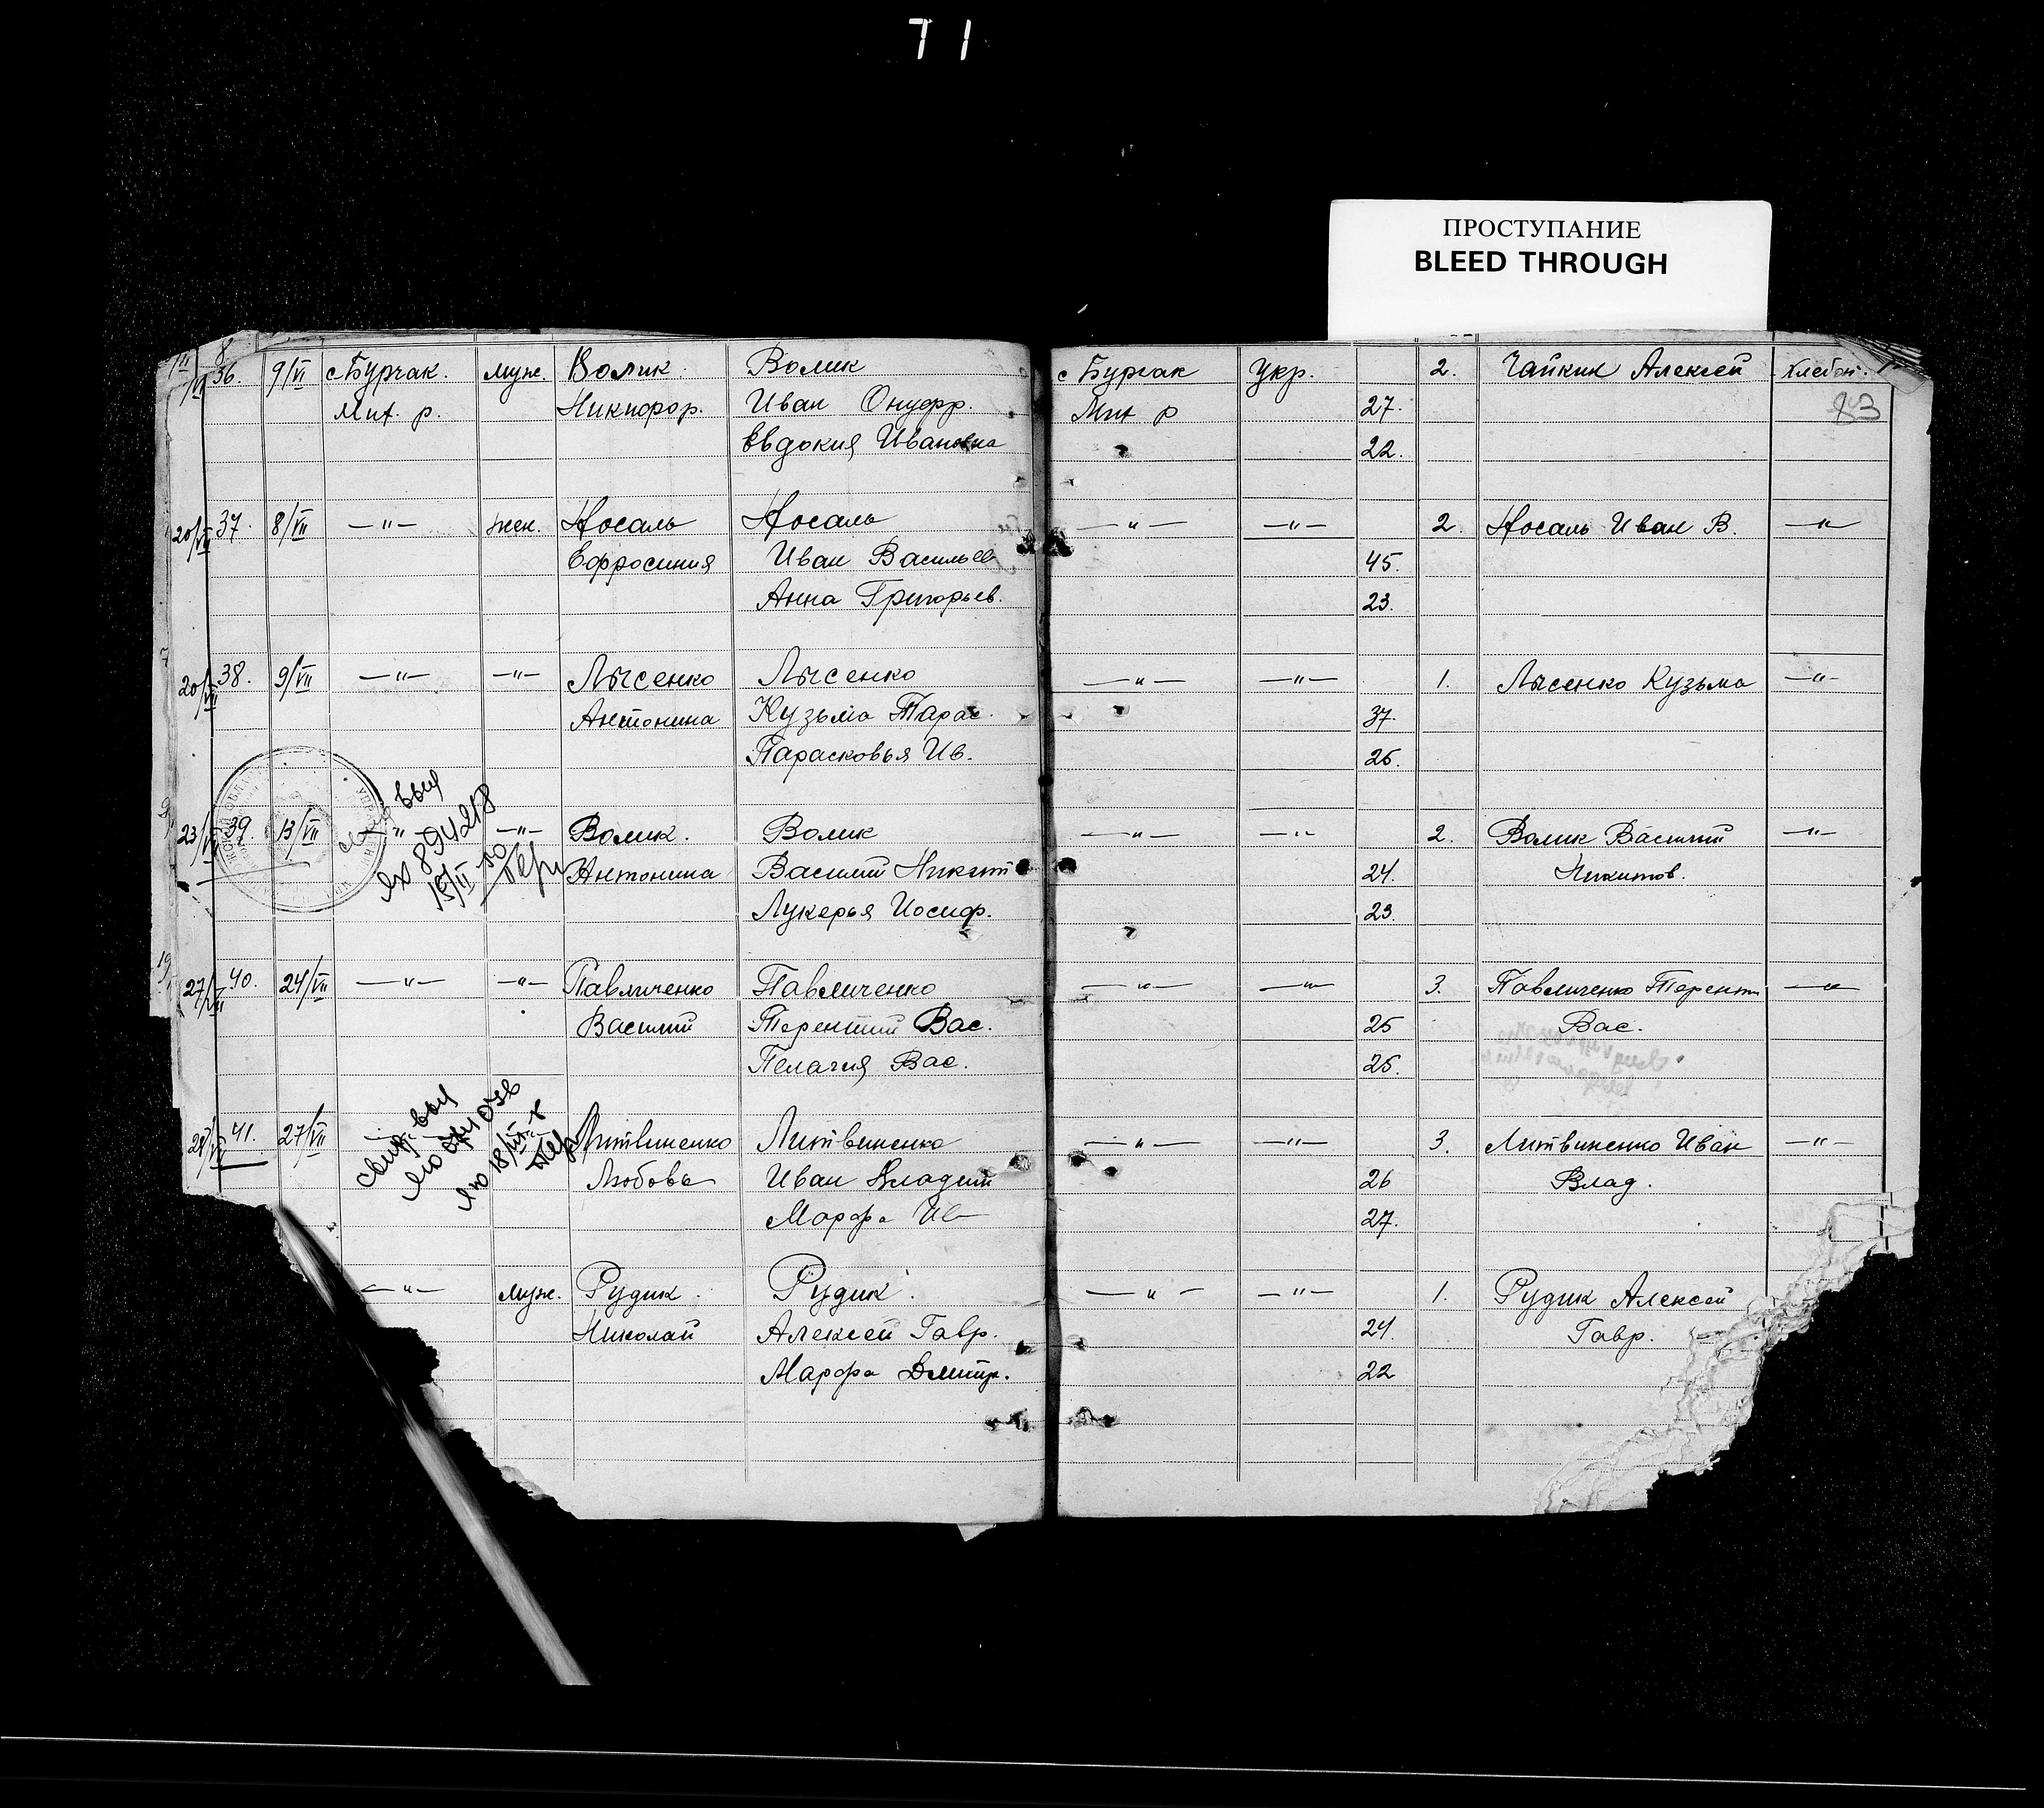 71
ПРОСТУПАНИЕ
BLEED THROUGH
36. 9/VI с Бурчак. муж. Волик. Волик с Бурчак укр. 2. Чайкин Алексей хлебоп.
Мих. р. Никифор. Иван Онуфр. Мих р 27.
Евдокия Ивановна 22.
20/VII 37. 8/VII —"— жен. Носаль Носаль —"— —"— 2. Носаль Иван В. —"—
Ефросиния Иван Васильев 45.
Анна Григорьев. 23.
20/VII 38. 9/VII —"— —"— Лысенко Лысенко —"— —"— 1. Лысенко Кузьма —"—
Антонина Кузьма Тарас. 37.
Парасковья Ив. 25.
23/VII 39. 13/VII —"— —"— Волик. Волик —"— —"— 2. Волик Василий —"—
894218
Антонина Василий Никит 24. Никитов.
15/II
Лукерья Иосиф. 23.
27/VII 40. 24/VII —"— —"— Павличенко Павличенко —"— —"— 3. Павличенко Терентий —"—
Василий Терентий Вас. 25 Вас.
Пелагия Вас. 25.
41. 27/VII Литвиненко Литвиненко —"— —"— 3. Литвиненко Иван —"—
Любовь Иван Владим 26 Влад.
Марфа Ив 27.
—"— муж. Рудик. Рудик. —"— —"— 1. Рудик Алексей
Николай Алексей Гавр. 24. Гавр.
Марфа Дмитр. 22